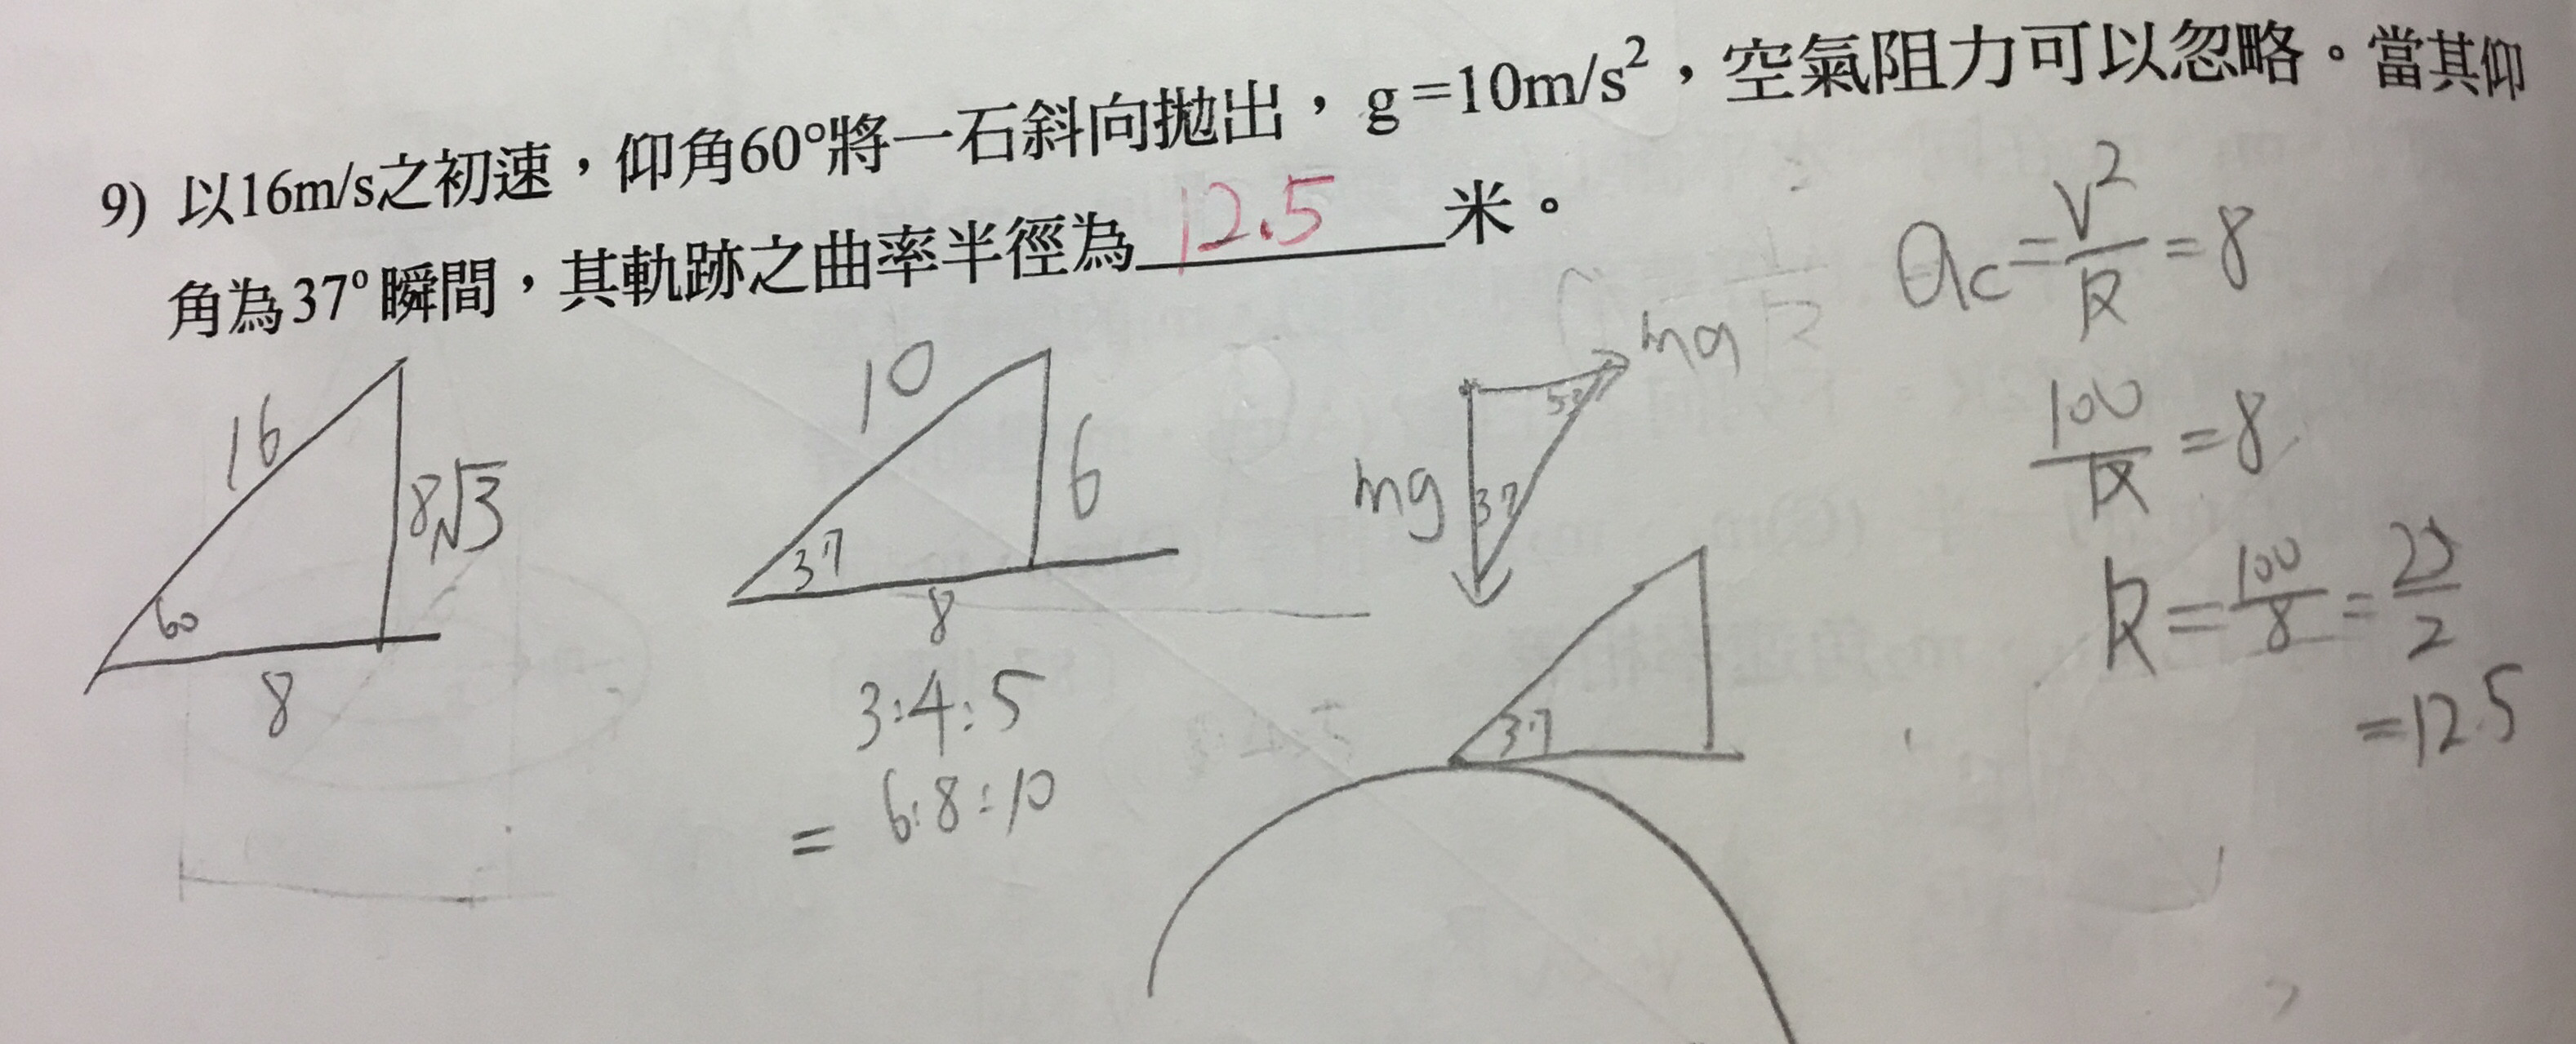 9) 以16m/s之初速，仰角60°將一石斜向拋出，g=10m/s²，空氣阻力可以忽略。當其仰
角為37°瞬間，其軌跡之曲率半徑為 12.5 米。
16
8√3
60
8
10
6
37
8
3:4:5
= 6:8:10
mg
37
37
ac = V²/R = 8
100/R = 8
R = 100/8 = 25/2
= 12.5